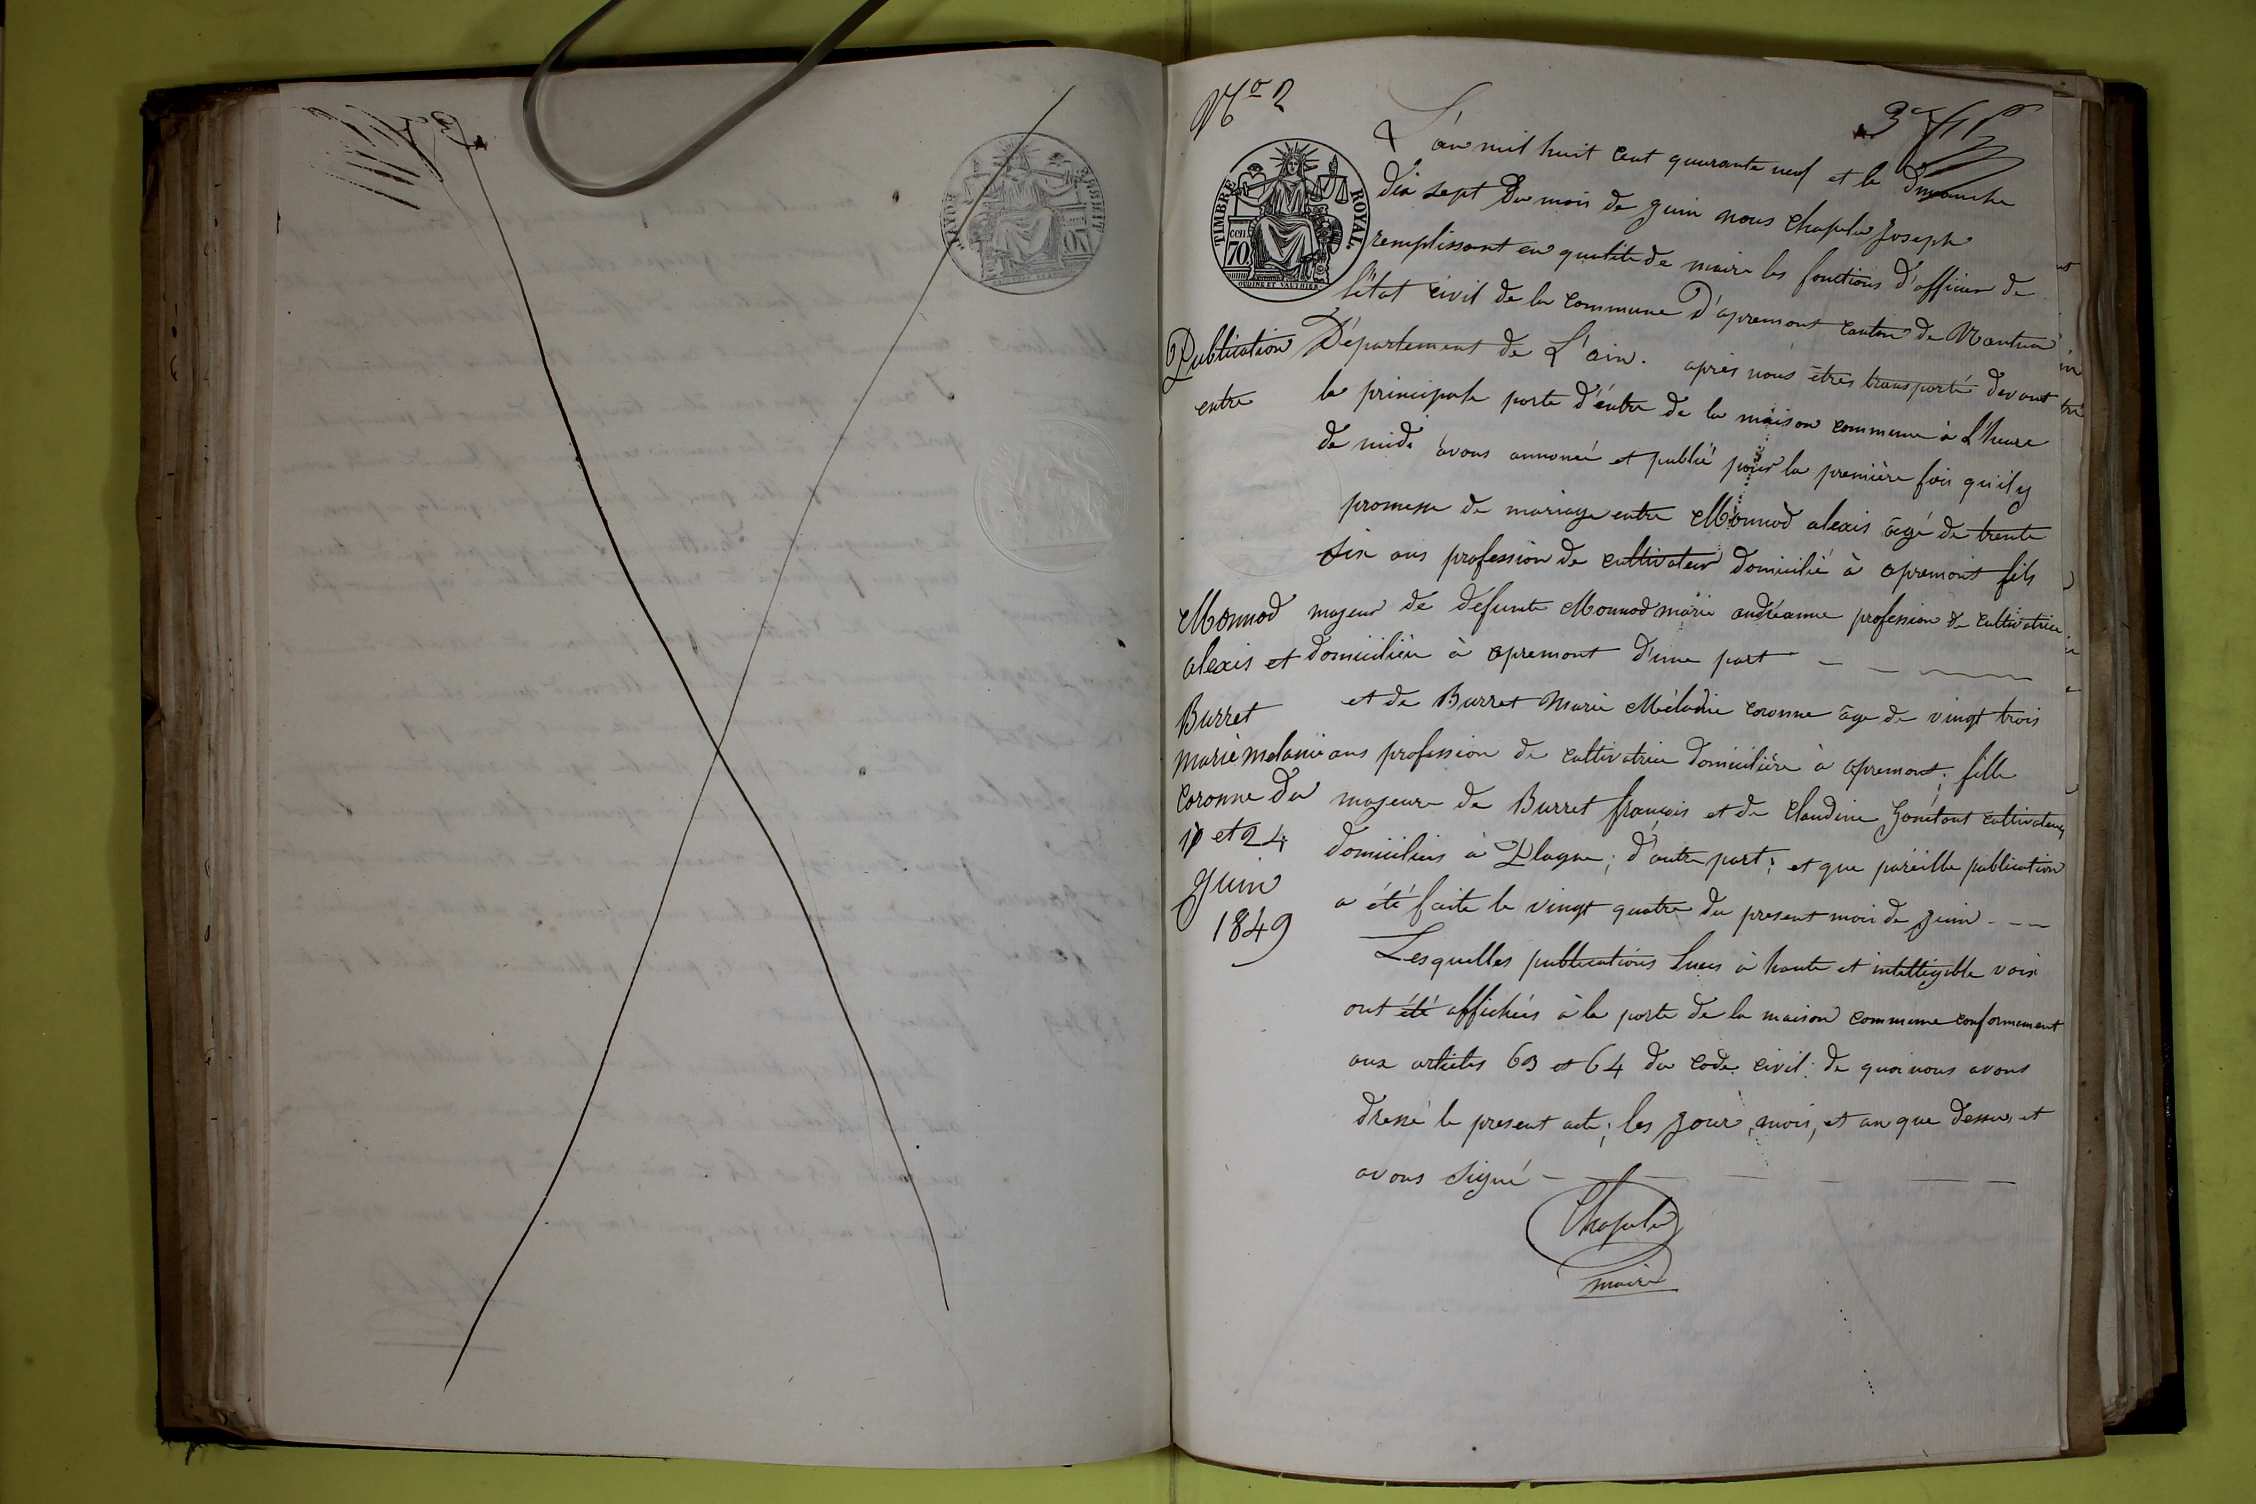 No 2
3
L'an mil huit cent quarante neuf et le Dimanche
dix sept du mois de Juin nous Chapelu Joseph
remplissant en qualité de maire les fonctions d'officier de
l'état civil de la commune D'apremont canton de Nantua
Département de L'ain. après nous êtres transporté devant
la principale porte d'entre de la maison commune à L'heure
de midi avons annoncé et publié pour la première fois qu'il y
promesse de mariage entre Monnod alexis âgé de trente
six ans profession de cultivateur domicilié à apremont fils
majeur de defunte Monnod marie andréanne profession de cultivatrice
domicilièe à apremont d'une part
et de Burret Marie Mélanie Coronne âge de vingt trois
ans profession de cultivatrice domicilière à apremont; fille
majeure de Burret françois et de Claudine cultivateurs
domiciliers à Plagne; d'autre part; et que pareille publication
a été faite le vingt quatre du present mois de juin
Lesquelles publications lues à haute et intelligible voix
ont été affichées à la porte de la maison commune conformement
aux articles 63 et 64 du code civil: de quoi nous avons
dressé le present acte; les jour, mois, et an que dessus et
avons signé
Chapelu
maire
Publication
entre
Monnod
alexis et
Burret
marie melanie
Coronne du
17 et 24
Juin
1849
TIMBRE ROYAL
70 cen
OUDINE ET VAUTHIER